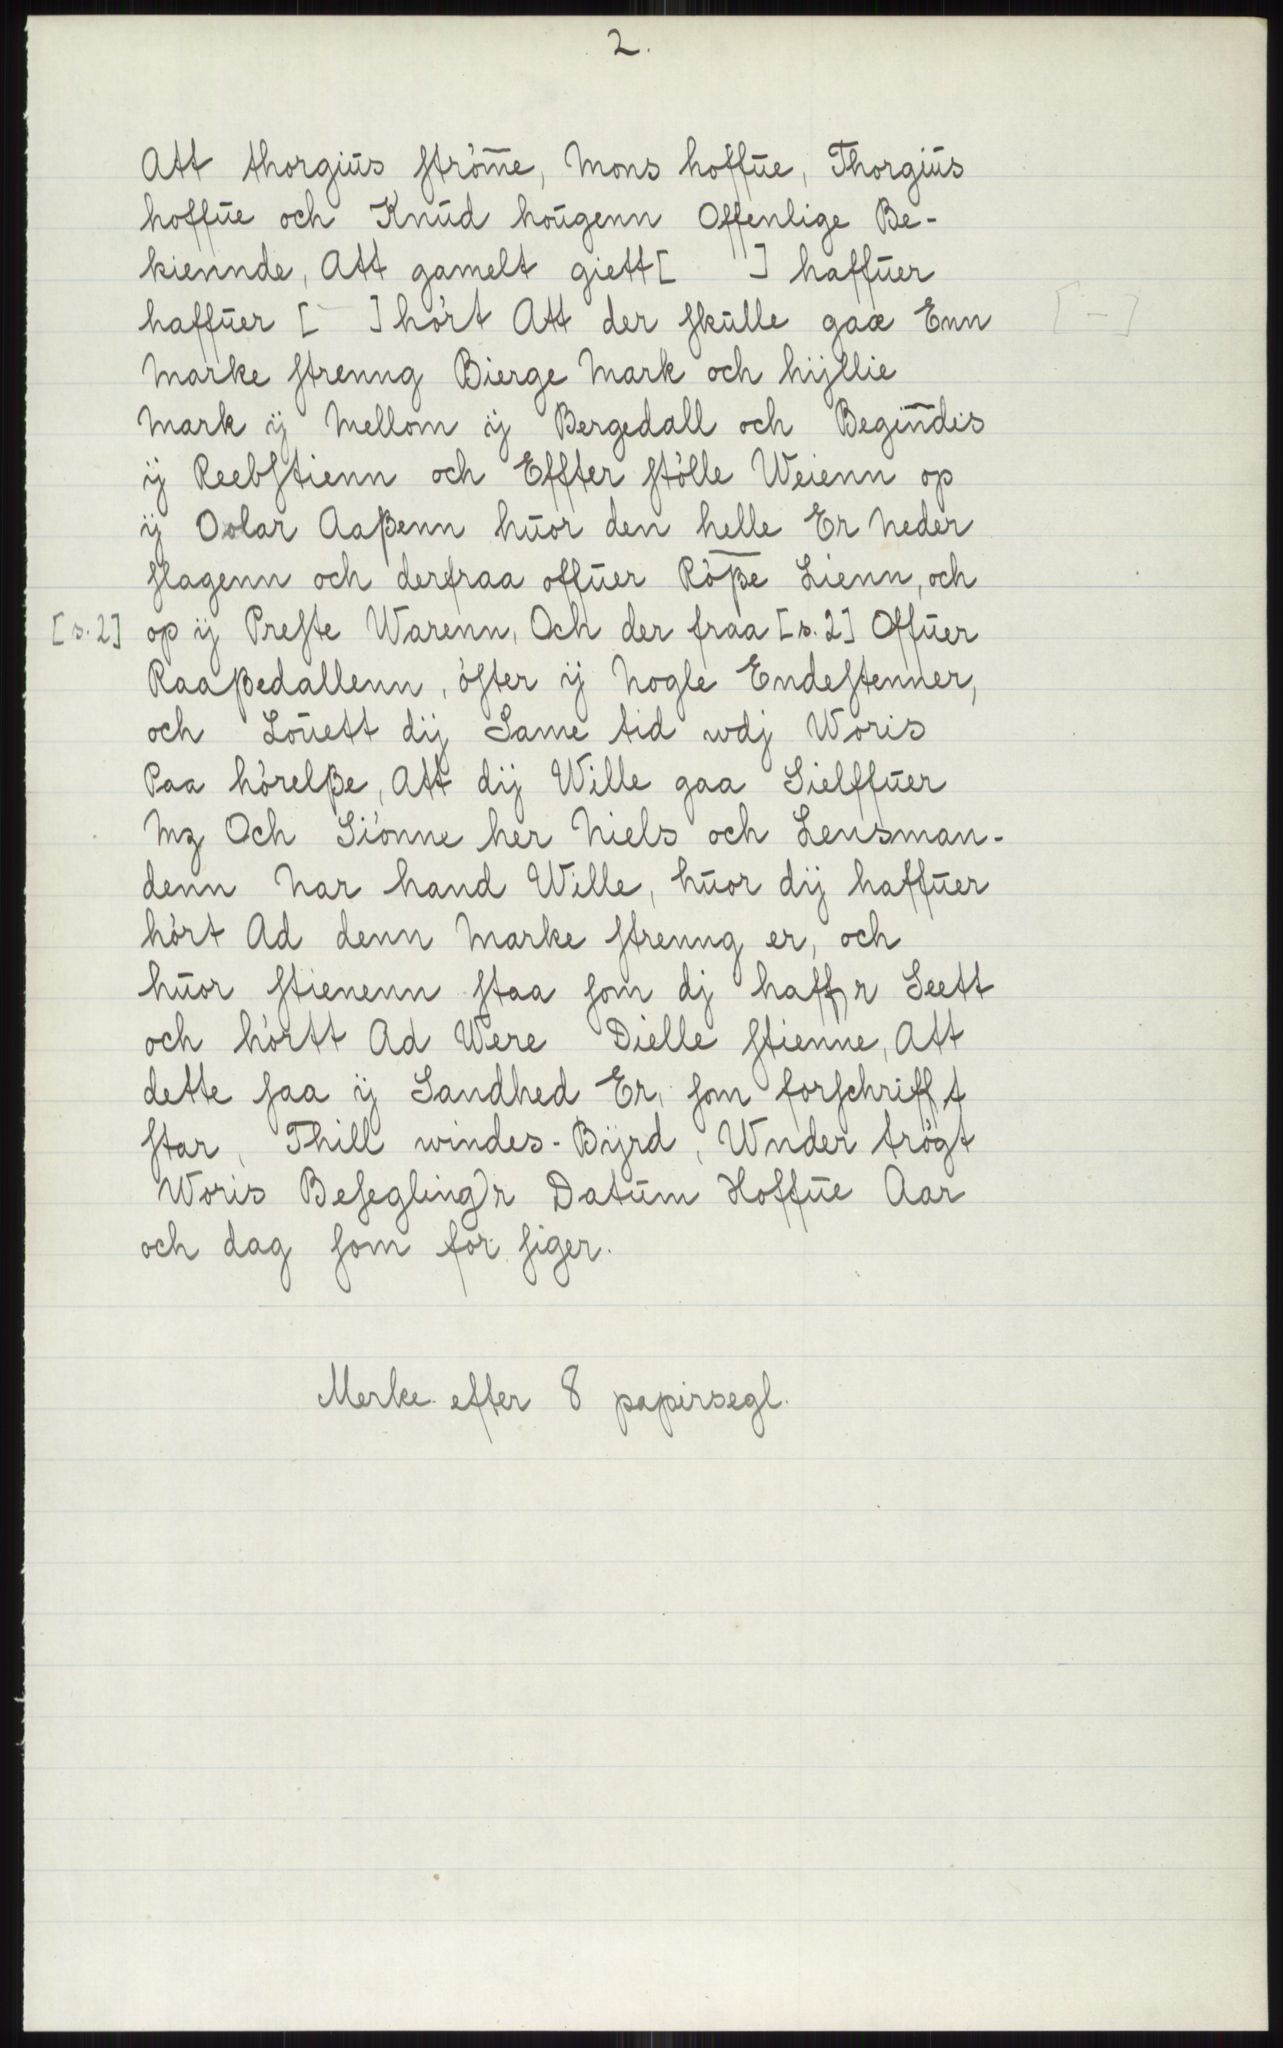 2.
Att thorgiūs ſtrøm̄e, Mons hoffūe, Thorgiūs
hoffūe och Knūd hoūgenn Offenlige Be-
kiennde, Att gamelt giett [ ] haffūer
haffūer [ ] hørt Att der ſkūlle gaa Enn [-]
Marke ſtrenng Bierge Mark och hijllie
Mark ij Mellom ij Bergedall och Begin̄dis
ij Reebſtienn och Effter ſtølle Weienn op
ij Oolar Aaßenn hūor den helle Er Neder
ſlagenn och derfraa offūer Røße Lienn, och
[s. 2] op ij Preſte Warenn, Och der fraa [s. 2] Offūer
Raaßedallenn, øſter ij Nogle Endeſtenner,
och Loūett dij Same tid wdj Woris
Paa hørelße, Att dij Wille gaa Sielffūer
Mz Och Siønne her Niels och Lensman-
denn Nar hand Wille, hūor dij haffūer
hørt Ad denn Marke ſtrenng er, och
hūor ſtienenn ſtaa ſom dj haffr Seett
och hørtt Ad Were Dielle ſtienne, Att
dette ſaa ij Sandhed Er, ſom forſchrifft
ſtar, Thill windes-Bijrd, Wnder trøgt
Woris Beſeglingr Datūm Hoffūe Aar
och dag ſom for ſiger.
Merke efter 8 papirsegl.